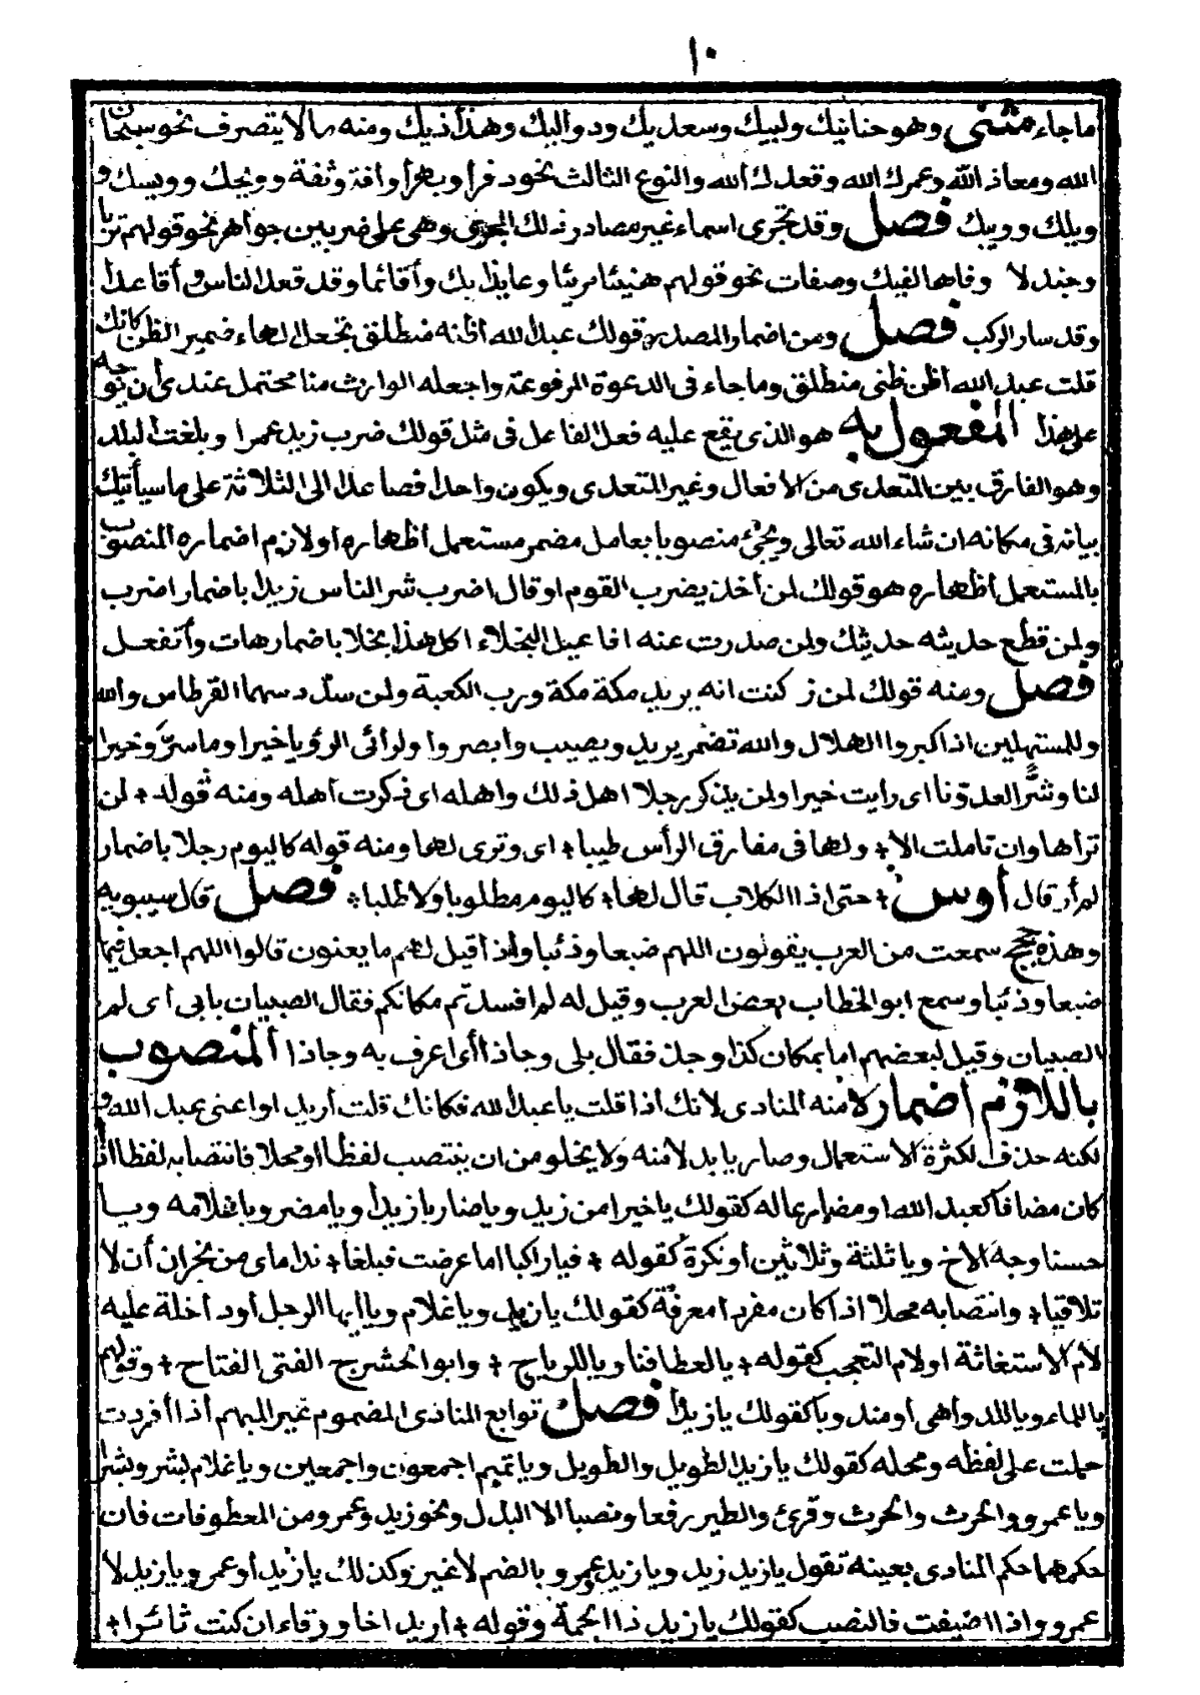 ١٠
ما جاء مثنى وهو حنانيك ولبيك وسعديك ودواليك وهذاذيك ومنه ما لا يتصرف نحو سبحان
الله ومعاذ الله وعمرك الله وقعدك الله والنوع الثالث نحو دفرا وبهرا وافة وتفة وويحك وويسك و
ويلك وويبك فصل وقد تجرى اسماء غير مصادر ذلك المجرى وهى على ضربين جواهر نحو قولهم تربا
وجندلا وفاها لفيك وصفات نحو قولهم هنيئا مريئا وعايذا بك وأقائما وقد قعد الناس وأقاعدا
وقد سار الركب فصل ومن اضمار المصدر قولك عبد الله اظنه منطلق تجعل الهاء ضمير الظن كانك
قلت عبد الله اظن ظنى منطلق وما جاء فى الدعوة المرفوعة واجعله الوارث منا محتمل عندى أن يوجه
على هذا المفعول به هو الذى يقع عليه فعل الفاعل فى مثل قولك ضرب زيد عمرا وبلغت البلد
وهو الفارق بين المتعدى من الافعال وغير المتعدى ويكون واحدا فصاعدا الى الثلاثة على ما سيأتيك
بيانه فى مكانه ان شاء الله تعالى ويجئ منصوبا بعامل مضمر مستعمل أظهاره او لازم اضماره المنصوب
بالمستعمل أظهاره هو قولك لمن أخذ يضرب القوم او قال اضرب شر الناس زيدا باضمار اضرب
ولمن قطع حديثه حديثك ولمن صدرت عنه افاعيل البخلاء اكل هذا بخلا باضمار هات وأتفعل
فصل ومنه قولك لمن زكنت انه يريد مكة مكة ورب الكعبة ولمن سدد سهما القرطاس والله
وللمستهلين اذا كبروا الهلال والله تضمر يريد ويصيب وأبصروا ولرائى الرؤيا خيرا وما سرّ وخيرا
لنا وشرّا لعدوّنا اى رايت خيرا ولمن يذكر رجلا اهل ذلك واهله اى ذكرت أهله ومنه قوله ⁜ لن
تراها وان تاملت الا ⁜ ولها فى مفارق الرأس طيبا ⁜ اى وترى لها ومنه قوله كاليوم رجلا باضمار
لم أر قال أوس ⁜ حتى اذا الكلاب قال لها ⁜ كاليوم مطلوبا ولا طلبا ⁜ فصل قال سيبويه
وهذه حجج سمعت من العرب يقولون اللهم ضبعا وذئبا واذا قيل لهم ما يعنون قالوا اللهم اجعل فيها
ضبعا وذئبا وسمع ابو الخطاب بعض العرب وقيل له لم افسدتم مكانكم فقال الصبيان بابى أى لم
الصبيان وقيل لبعضهم اما بمكان كذا وجذ فقال بلى وجاذا أى اعرف به وجاذا المنصوب
باللازم اضماره منه المنادى لانك اذا قلت يا عبد الله فكانك قلت أريد او اعنى عبد الله و
لكنه حذف لكثرة الاستعمال وصار يا بدلا منه ولا يخلو من ان ينتصب لفظا او محلا فانتصابه لفظا اذا
كان مضافا كعبد الله او مضارعا له كقولك يا خيرا من زيد ويا ضاربا زيدا ويا مضروبا غلامه ويا
حسنا وجه الاخ ويا ثلثة وثلاثين أو نكرة كقوله ⁜ فيا راكبا اما عرضت فبلغا ⁜ نداماى من نجران أن لا
تلاقيا ⁜ وانتصابه محلا اذا كان مفردا معرفة كقولك يا زيد ويا غلام ويا ايها الرجل أو داخلة عليه
لام الاستغاثة او لام التعجب كقوله ⁜ يا لعطافنا ويا للرياح ⁜ وابو الحشرج الفتى الفتاح ⁜ وقولهم
يا للماء ويا للدواهى أو مندوبا كقولك يا زيدا فصل توابع المنادى المضموم غير المبهم أذا أفردت
حملت على لفظه ومحله كقولك يا زيد الطويل والطويل ويا تميم اجمعون واجمعين ويا غلام بشر وبشرا
ويا عمرو والحرث والحرث وقرئ والطير رفعا ونصبا الا البدل ونحو زيد وعمرو من المعطوفات فان
حكمهما حكم المنادى بعينه تقول يا زيد زيد ويا زيد وعمرو بالضم لا غير وكذلك يا زيد أو عمرو ويا زيد لا
عمرو واذا اضيفت فالنصب كقولك يا زيد ذا الجمة وقوله ⁜ ازيد اخا ورقاء ان كنت ثائرا ⁜